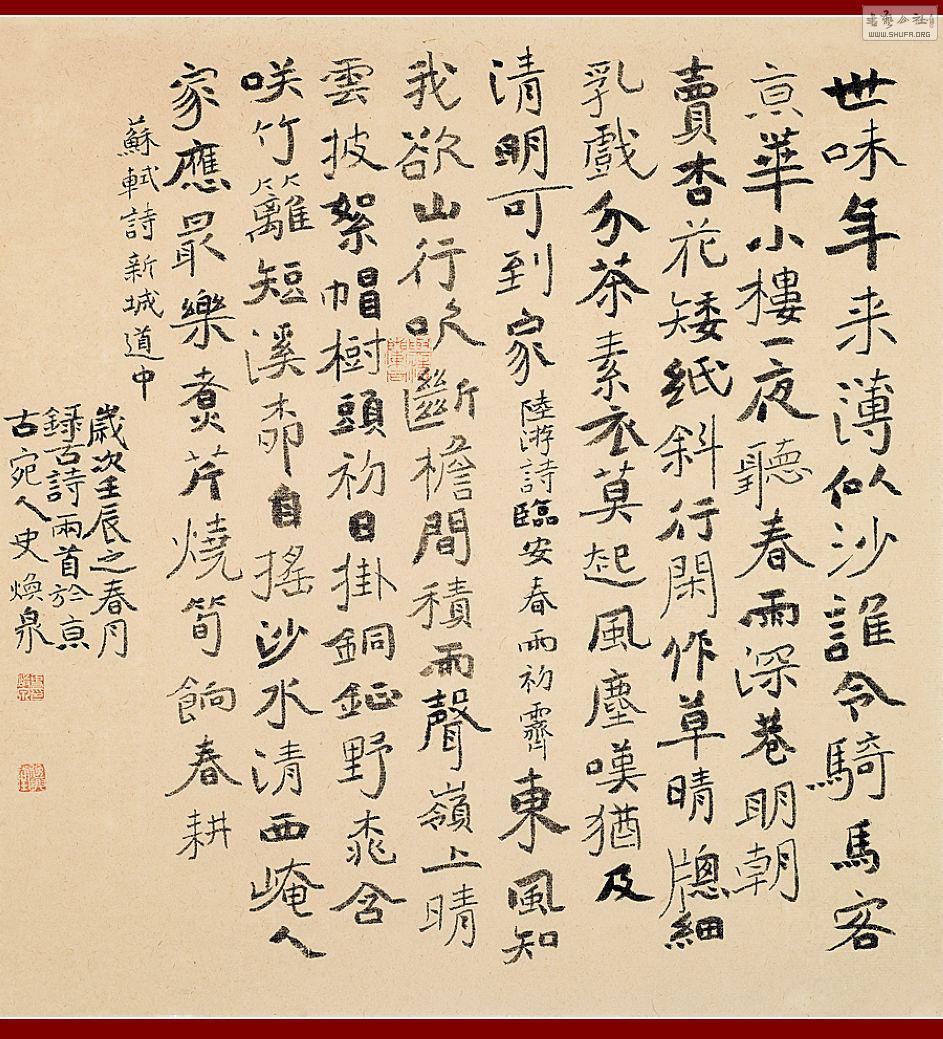 世味年来薄似沙誰令騎馬客
京華小樓一夜聽春雨深巷明朝
賣杏花矮紙斜行閑作草晴牕細
乳戲分茶素衣莫起風塵嘆猶及
清明可到家陸游詩臨安春雨初霽東風知
我欲山行吹斷檐間積雨聲嶺上晴
雲披絮帽樹頭初日掛銅鉦野桃含
咲竹籬短溪柳自搖沙水清西崦人
家應最樂煮芹燒筍餉春耕
蘇軾詩新城道中
歲次壬辰之春月
録古詩兩首於京
古宛人史煥泉
WWW.SHUFA.ORG